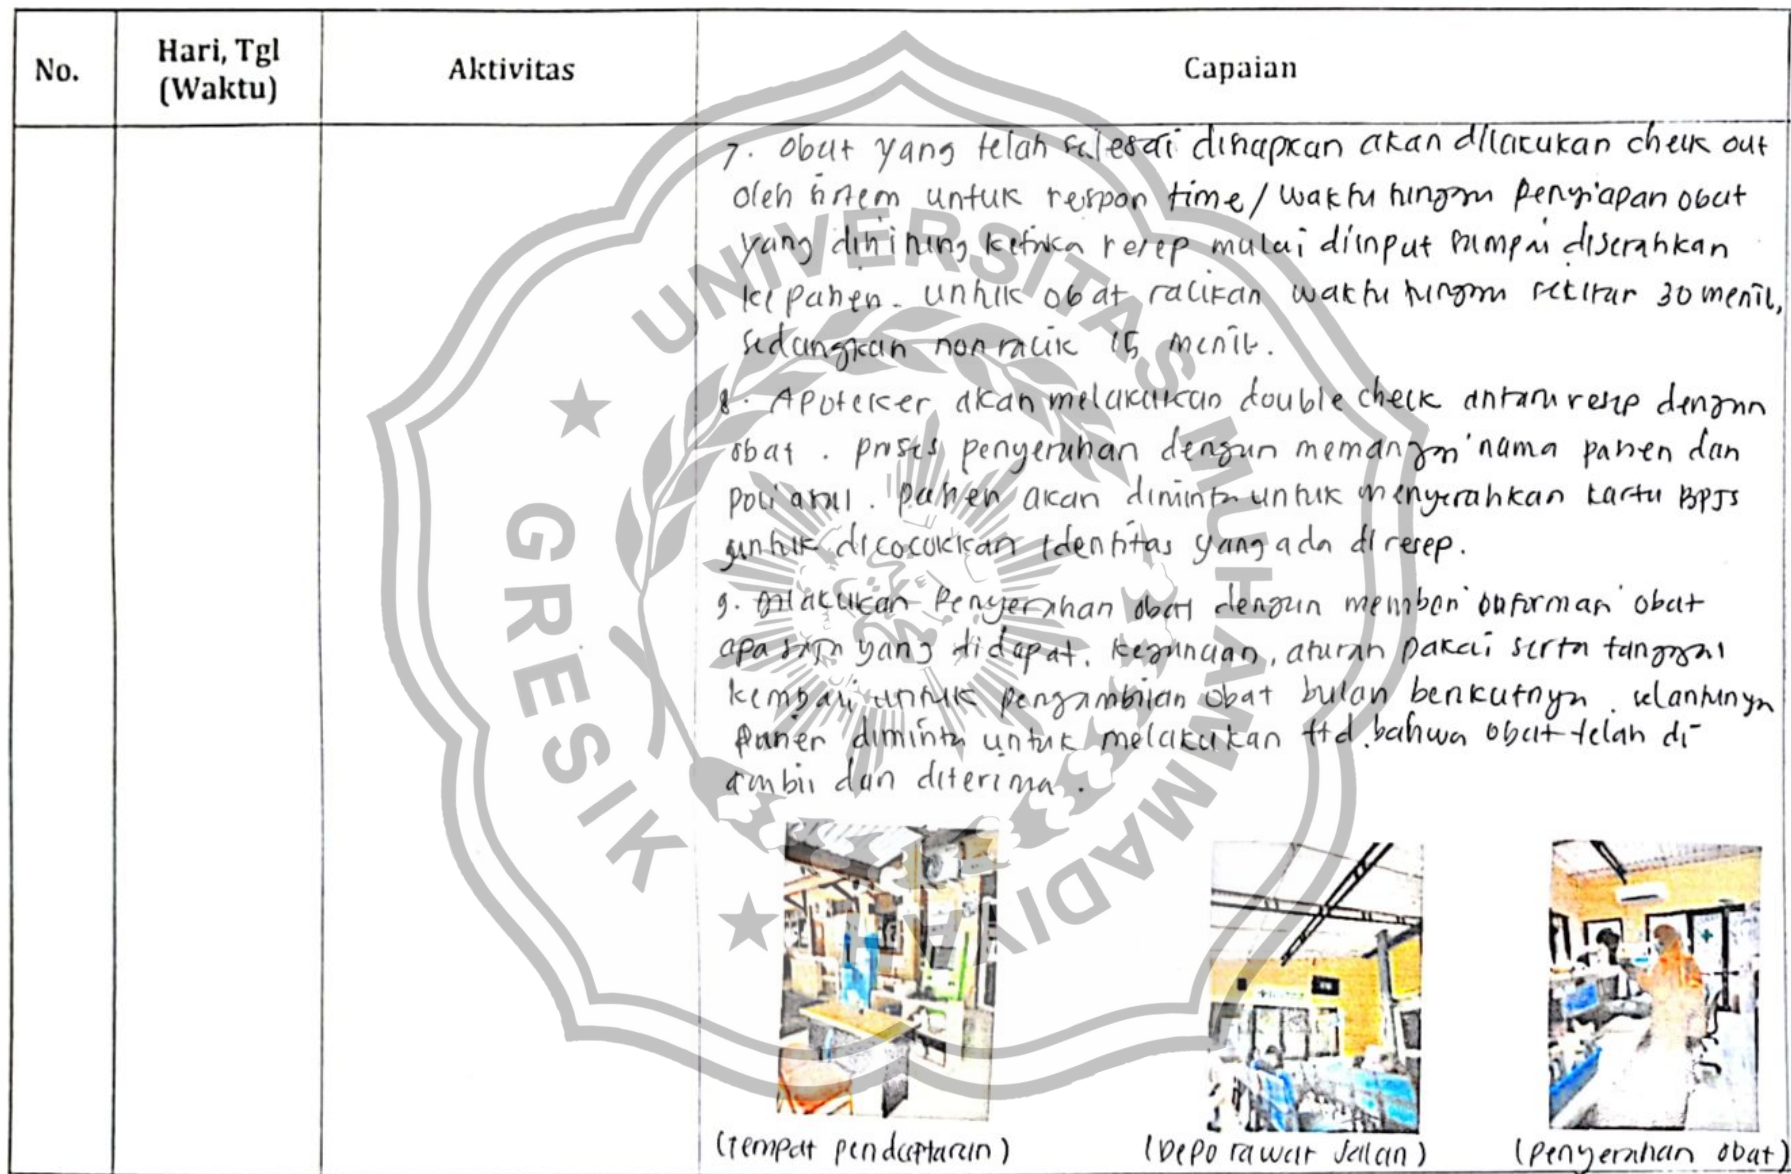 No.
Hari, Tgl
(Waktu)
Aktivitas
Capaian
7. Obat yang telah selesai disiapkan akan dilakukan check out
oleh sistem untuk respon time/waktu tunggu penyiapan obat
yang dihitung ketika resep mulai diinput sampai diserahkan
ke pasien. untuk obat racikan waktu tunggu sekitar 30 menit,
sedangkan nonracik 15 menit.
8. Apoteker akan melakukan double check antara resep dengan
obat. proses penyerahan dengan memanggil nama pasien dan
poli asal. pasien akan diminta untuk menyerahkan kartu BPJS
untuk dicocokkan identitas yang ada di resep.
9. Dilakukan Penyerahan obat dengan memberi informasi obat
apa saja yang didapat, kegunaan, aturan pakai serta tanggal
kembali untuk pengambilan obat bulan berikutnya. selanjutnya
pasien diminta untuk melakukan ttd. bahwa obat telah di
ambil dan diterima.
(tempat pendaftaran)
(Depo rawat Jalan)
(penyerahan obat)
UNIVERSITAS MUHAMMADIYAH
GRESIK